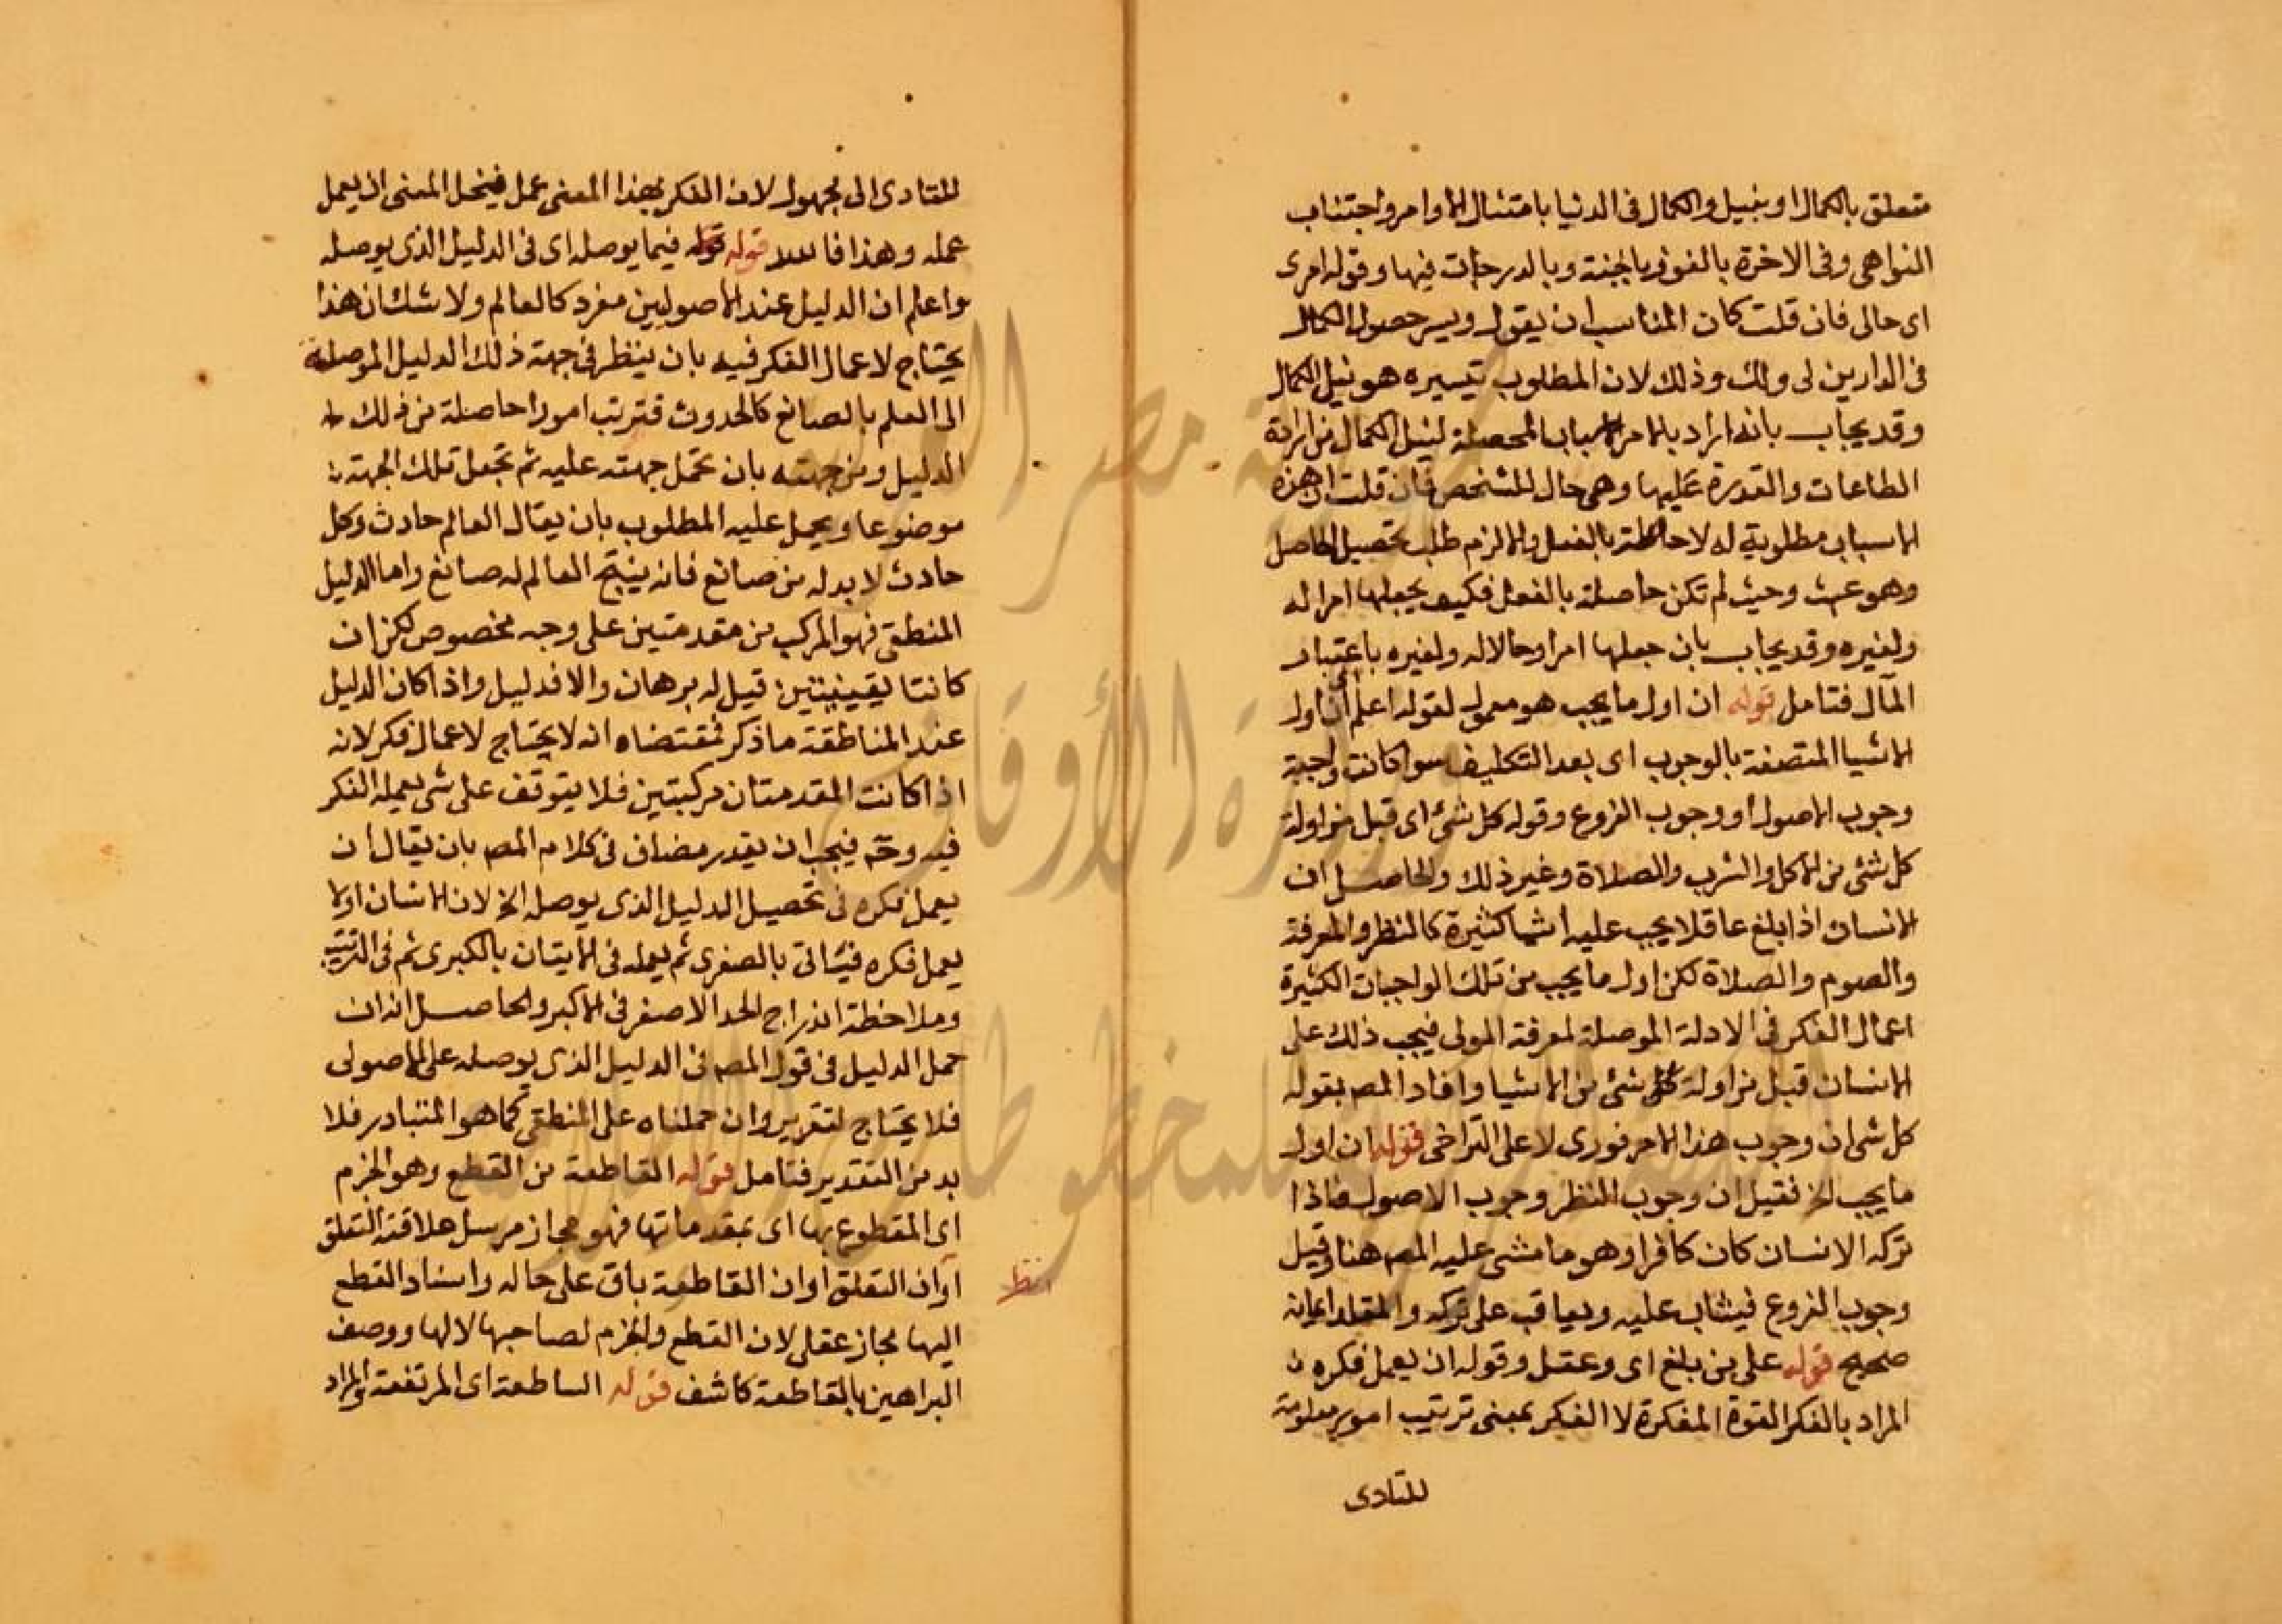 متعلق بالكمال او بنيل والكمال فى الدنيا بامتثال الاوامر واجتناب
النواهى وفى الاخرة بالفوز بالجنة وبالدرجات فيها وقوله امرى
اى حالى فان قلت كان المناسب ان يقول ويسر حصول الكمال
فى الدارين لى ولك وذلك لان المطلوب تيسيره هو نيل الكمال
وقد يجاب بانه اراد بالامر الاسباب المحصلة لنيل الكمال من ارادة
الطاعات والقدرة عليها وهى حال للشخص فان قلت ان هذه
الاسباب مطلوبة له لا حاصلة بالفعل والا لزم طلب تحصيل الحاصل
وهو عبث وحيث لم تكن حاصلة بالفعل فكيف يجعلها امرا له
ولغيره وقد يجاب بان جعلها امرا وحالا له ولغيره باعتبار
المآل فتامل قوله ان اول ما يجب هو معمول لقوله اعلم اى ان اول
الاشيا المتصفة بالوجوب اى بعد التكليف سوا كانت واجبة
وجوب الاصول او وجوب الفروع وقوله كل شئ اى قبل مزاولة
كل شئ من الاكل والشرب والصلاة وغير ذلك والحاصل ان
الانسان اذا بلغ عاقلا يجب عليه اشيا كثيرة كالنظر والمعرفة
والصوم والصلاة لكن اول ما يجب من تلك الواجبات الكثيرة
اعمال الفكر فى الادلة الموصلة لمعرفة المولى فيجب ذلك على
الانسان قبل مزاولة كل شئ من الاشيا وافاد المص بقوله
كل شى ان وجوب هذا الامر فورى لا على التراخى قوله ان اول
ما يجب الخ فقيل ان وجوب النظر وجوب الاصول فاذا
تركه الانسان كان كافرا وهو ما مشى عليه المص هنا وقيل
وجوب الفروع فيثاب عليه ويعاقب على تركه والمقلد ايمانه
صحيح قوله على من بلغ اى وعقل وقوله ان يعمل فكره
المراد بالفكر القوة المفكرة لا الفكر بمعنى ترتيب امور معلومة
للتادى
للتادى الى مجهول لان الفكر بهذا المعنى عمل فينحل المعنى ان يعمل
عمله وهذا قوله قوله فيما يوصله اى فى الدليل الذى يوصله
واعلم ان الدليل عند الاصوليين مفرد كالعالم ولا شك ان هذا
يحتاج لاعمال الفكر فيه بان ينظر فى جهة ذلك الدليل الموصلة
الى العلم بالصانع كالحدوث فترتب امورا حاصلة من ذلك
الدليل ومن جهته بان تحمل جهته عليه ثم تجعل تلك الجهة
موضوعا ويحمل عليه المطلوب بان يقال العالم حادث وكل
حادث لا بد له من صانع فانه ينتج العالم له صانع واما الدليل
المنطقى فهو المركب من مقدمتين على وجه مخصوص لكن ان
كانتا يقينيتين قيل له برهان والا فدليل واذا كان الدليل
عند المناطقة ما ذكر فمقتضاه انه لا يحتاج لاعمال فكر لانه
اذا كانت المقدمتان مركبتين فلا يتوقف على شى يعمله الفكر
فيه وحـ فيجب ان يقدر مضاف فى كلام المص بان يقال ان
يعمل فكره فى تحصيل الدليل الذى يوصله الخ لان الانسان اولا
يعمل فكره فيتاتى بالصغرى ثم يعمله فى الايتان بالكبرى ثم فى الترتيب
وملاحظة اندراج الحد الاصغر فى الاكبر والحاصل انه ان
حمل الدليل فى قول المص فى الدليل الذى يوصله على الاصولى
فلا يحتاج لتقدير وان حملناه على المنطقى كما هو المتبادر فلا
بد من التقدير فتامل قوله القاطعة من القطع وهو الجزم
اى المقطوع بها اى بمقدماتها فهو مجاز مرسل علاقته التعلق
او ان التعلق او ان القاطعة باق على حاله واسناد القطع
انظر
اليها مجاز عقلى لان القطع والجزم لصاحبها لا لها ووصف
البراهين بالقاطعة كاشف قوله الساطعة اى المرتفعة والمراد